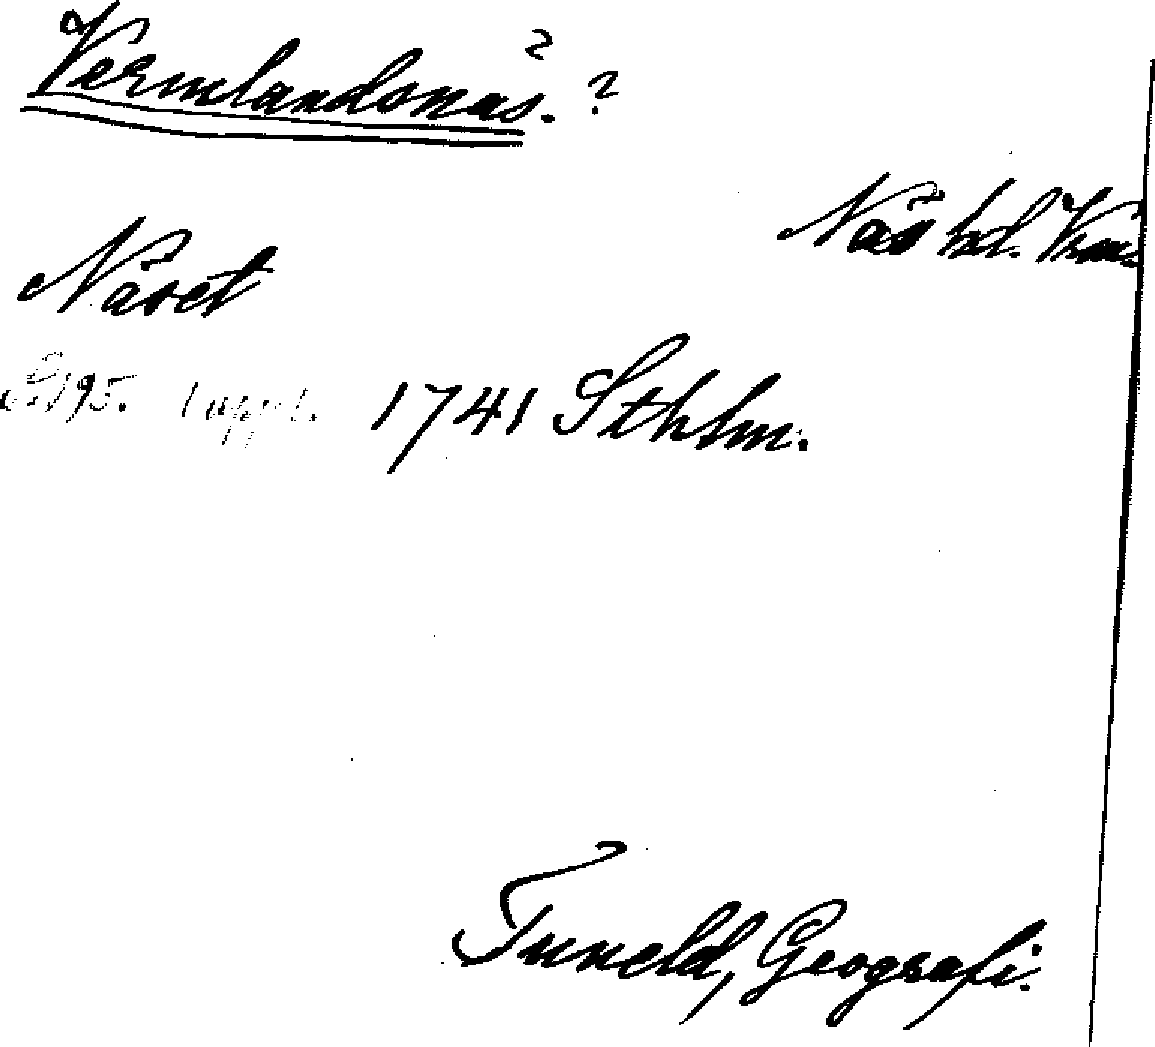 Vermlandsnäs. ?
Näs hd. Vrm.
Näset
S. 195. 1 uppl. 1741 Sthlm.
Tuneld, Geografi.